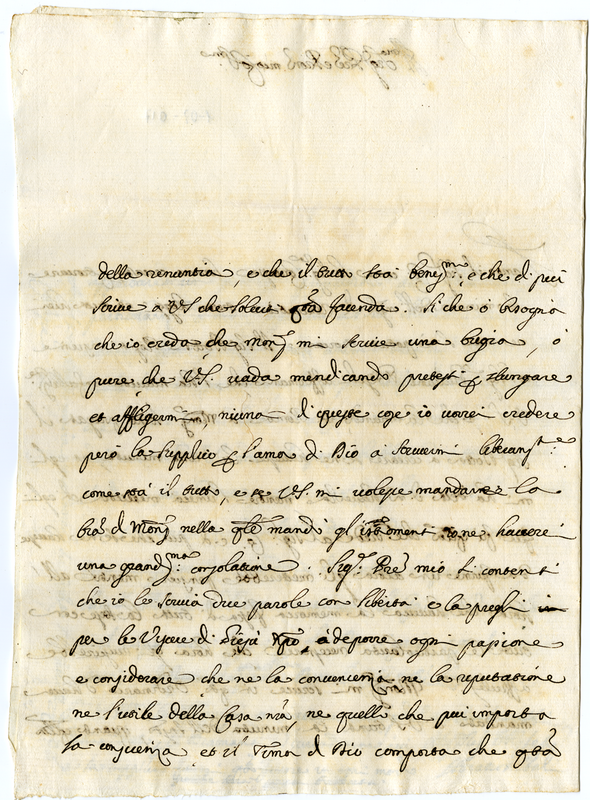 della renuntia, e che il tutto stà benes.mo: e che di più
scrive a V.S. che solleciti q.ta facenda. Si che o bisogna
che io creda, che Mons.r mi scrive una bugia, ò
pure che V.S. vada mendicando pretesti p slungare
et affligermi, niuna di queste cose io vorrei credere
però la supplico p l'amor di Dio à scrivermi liberam.te
come stà il tutto, e se V.S. mi volesse mandare la
l'ra di Mons.r nella q.le mandò gl' istromenti ne haverei
una grand.ma consolatione. Sig.r P're mio si contenti
che io le scriva due parole con libertà e la preghi
per le Viscere di Giesù X'po, à deporre ogni passione
e considerare che ne la convenienza, ne la reputatione
ne l'utile della Casa n'ra, ne quelli, che più importa
la conscienza et il timor di Dio comporta che q.ta